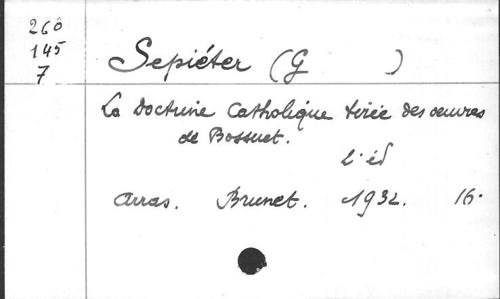 260
145
7
Sepiéter (G )
La Doctrine Catholique tirée des œuvres
de Bossuet.
éd
Arras. Brunet. 1932. 16.